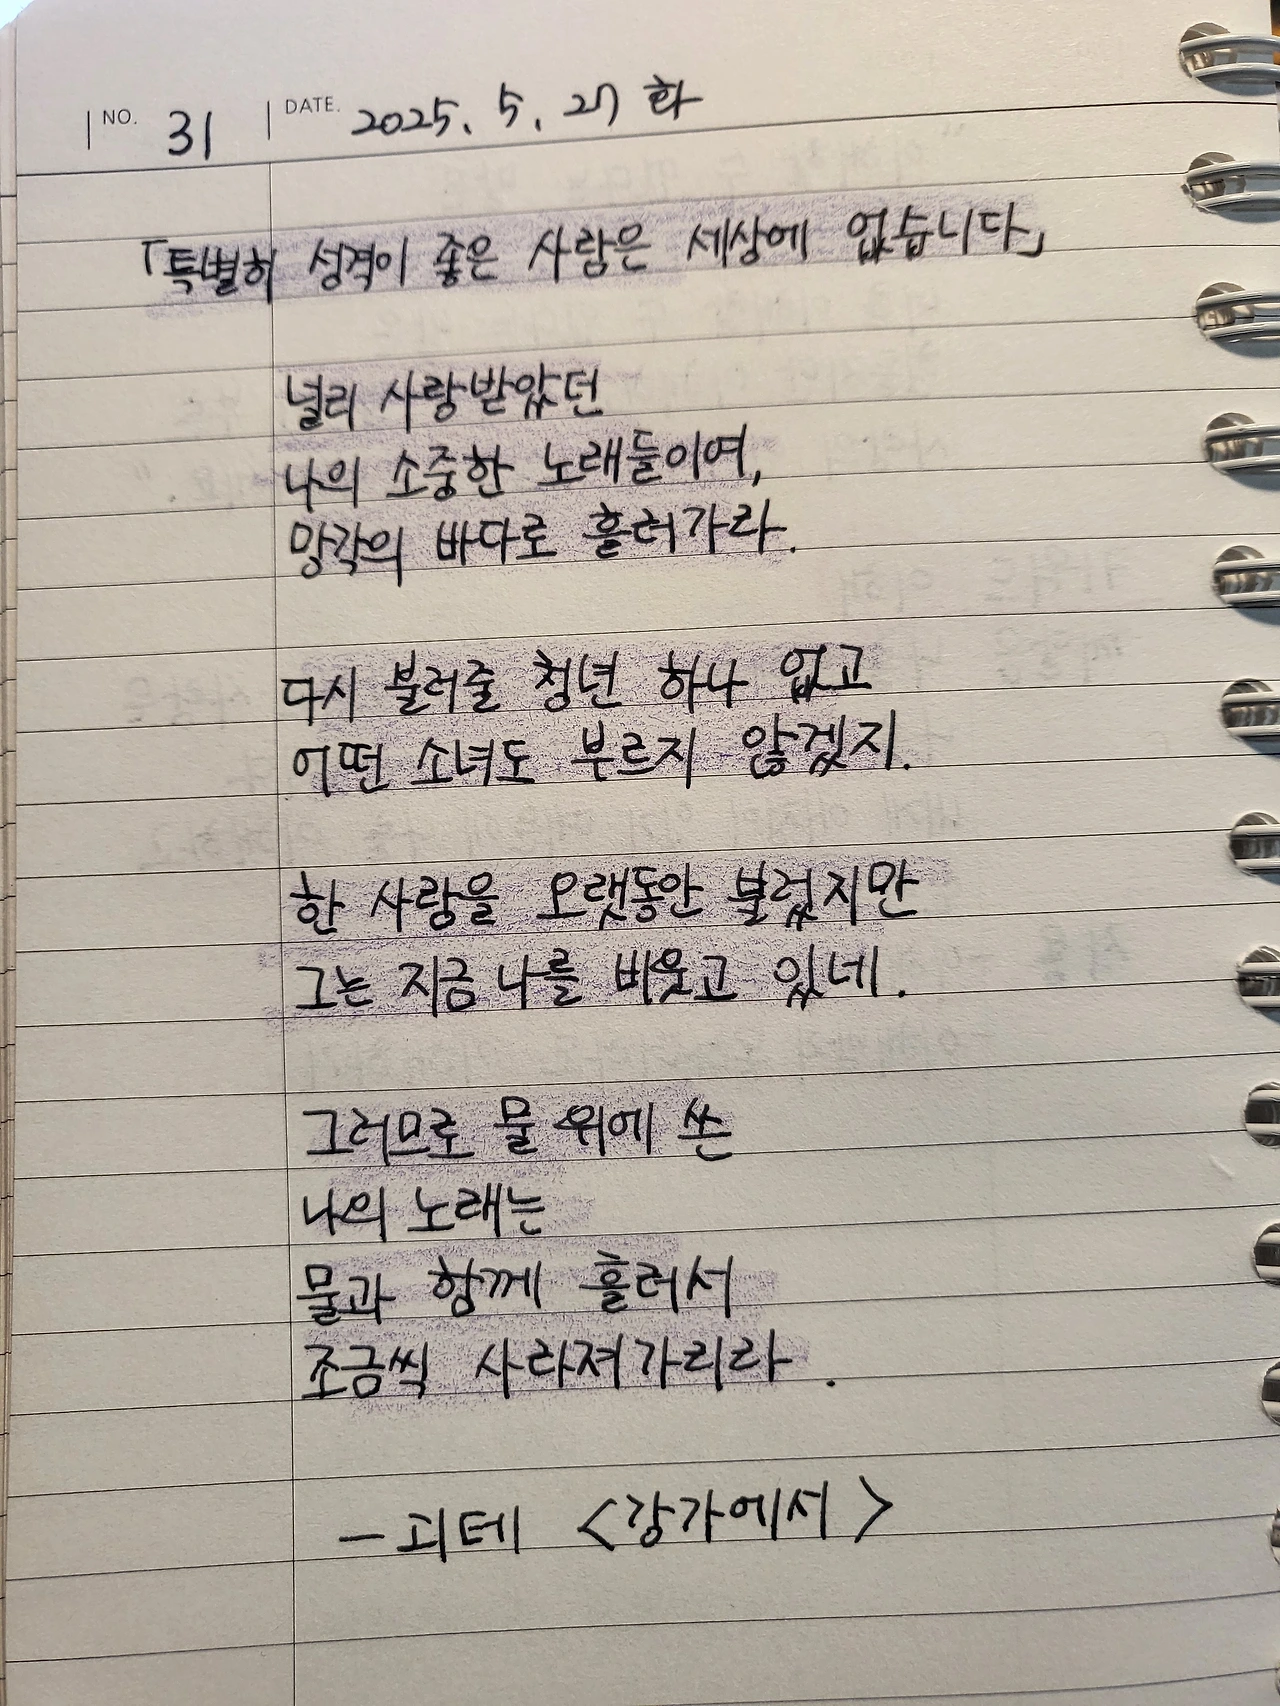 NO. 31 DATE. 2025. 5. 27 화
「특별히 성격이 좋은 사람은 세상에 없습니다」
널리 사랑받았던
나의 소중한 노래들이여,
망각의 바다로 흘러가라.
다시 불러줄 청년 하나 없고
어떤 소녀도 부르지 않겠지.
한 사람을 오랫동안 불렀지만
그는 지금 나를 비웃고 있네.
그러므로 물 위에 쓴
나의 노래는
물과 함께 흘러서
조금씩 사라져가리라.
- 괴테 <강가에서>